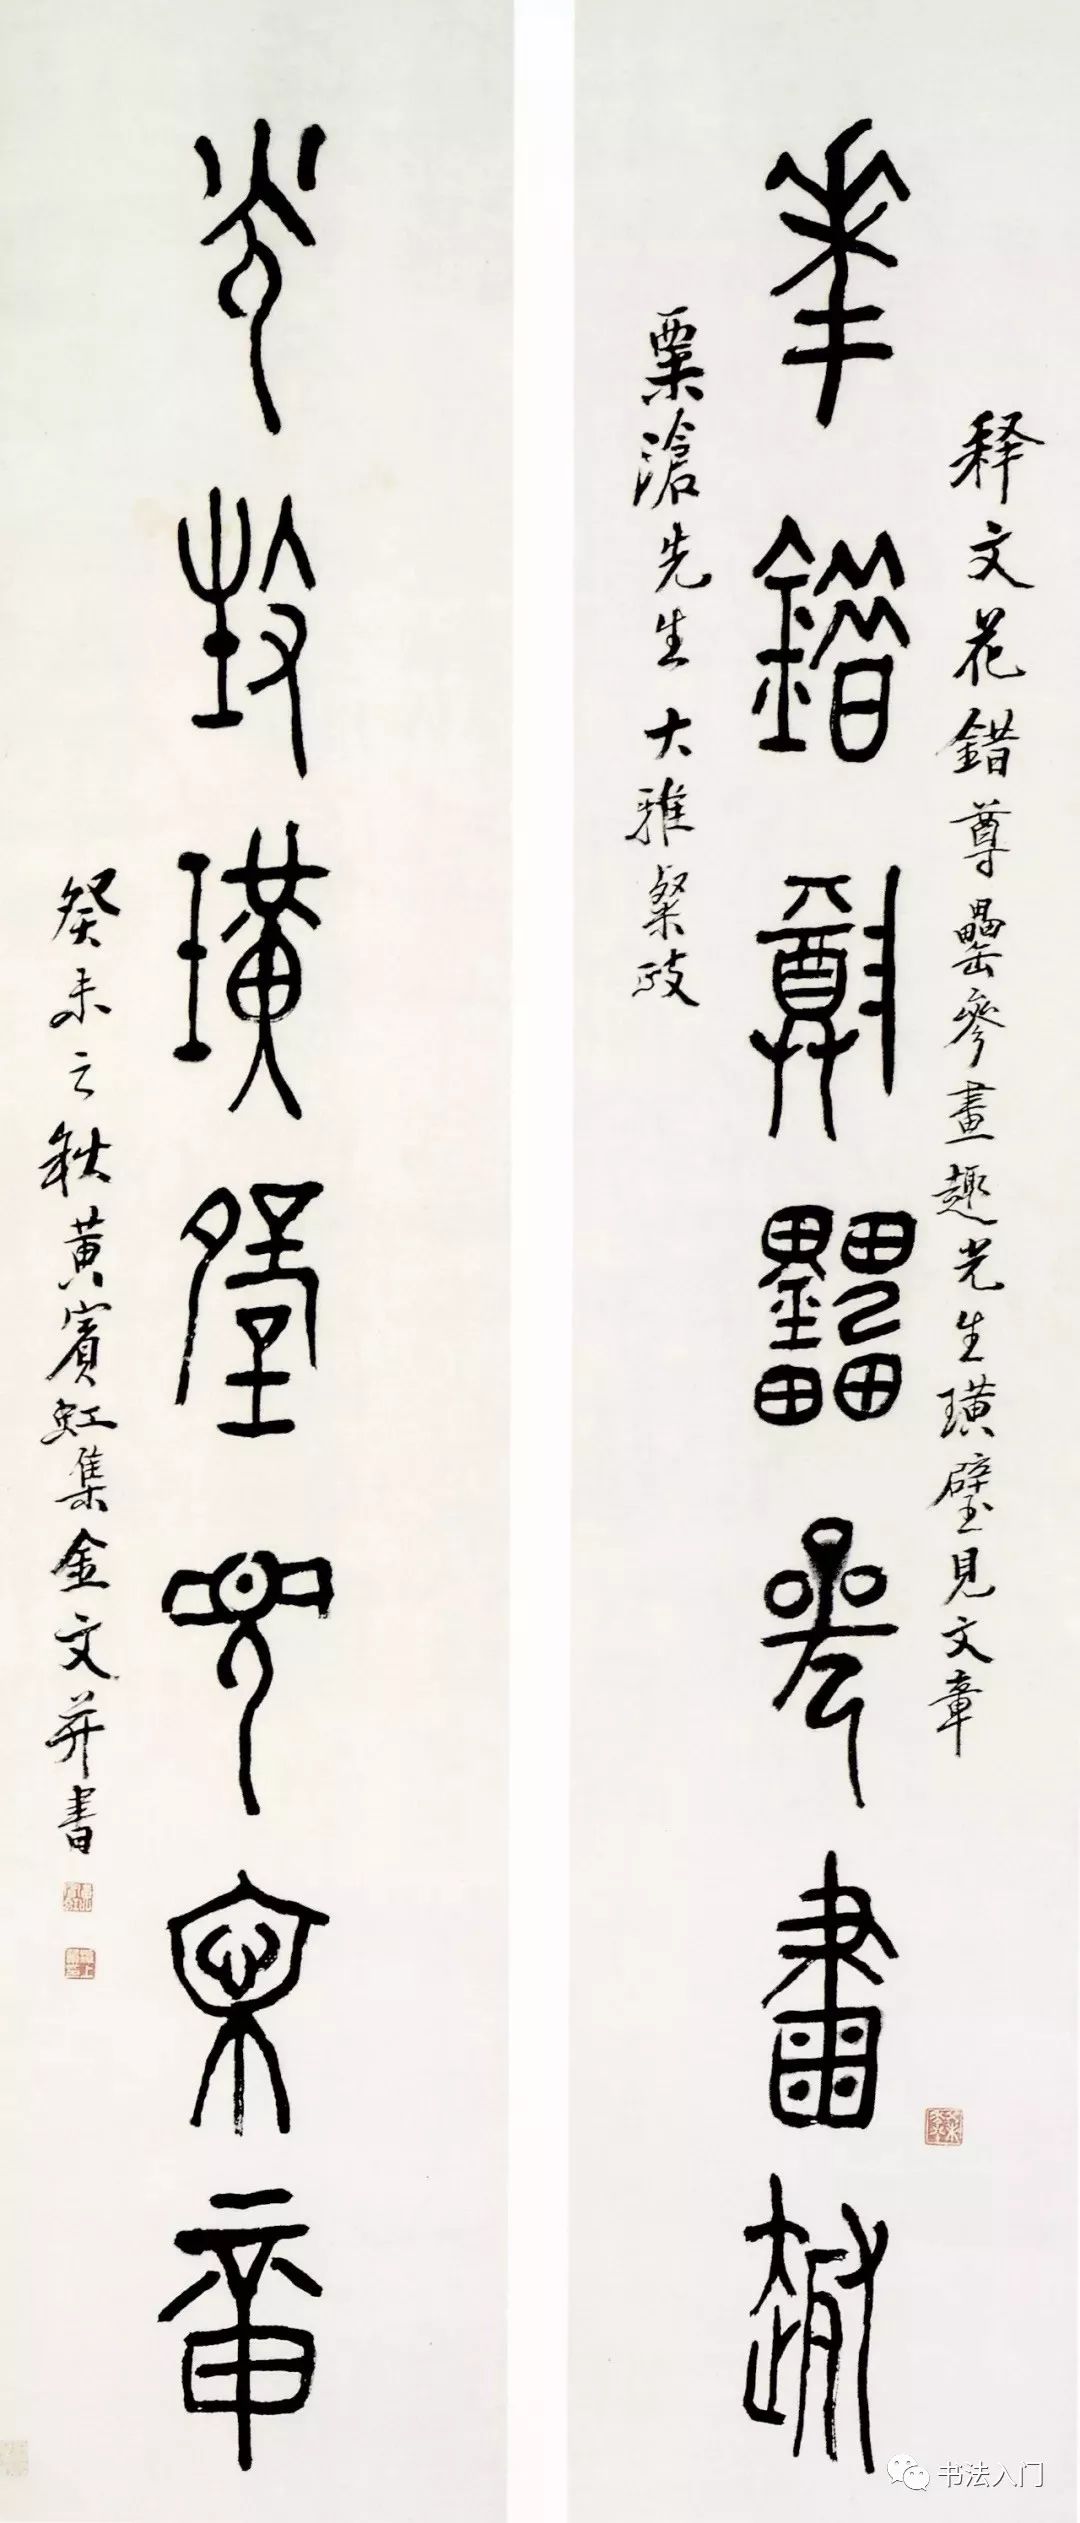 释文花錯尊罍參畫趣光生璜璧見文章
華錯尊罍參畫趣
栗滄先生大雅粲政
光生璜璧見文章
癸未之秋黄賓虹集金文并書
书法入门